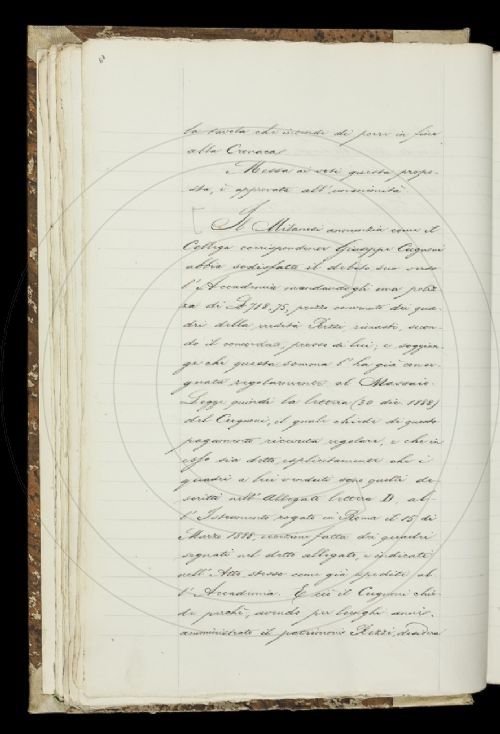 la tavola che intende di porre in fine
alla Cronaca.
Messa ai voti questa propo-
sta, è approvata all'unanimità.
Il Milanesi annunzia come il
Collega corrispondente Giuseppe Cugnoni
abbia sodisfatto il debito suo verso
l'Accademia mandandogli una poliz-
za di L 788,75, prezzo convenuto dei qua-
dri della eredità Rezzi rimasti, secon-
do il concordato, presso di lui; e soggiun-
ge che questa somma l'ha già conse-
gnata regolarmente al Massaio.
Legge quindi la lettera (30 dic. 1888)
del Cugnoni, il quale chiede di questo
pagamento ricevuta regolare, e che in
essa sia detto esplicitamente che i
quadri a lui venduti sono quelli de-
scritti nell'Allegato lettera D. al-
l'Istrumento rogato in Roma il 15 di
Marzo 1888, eccezione fatta dei quadri
segnati nel detto allegato, e indicati
nell'Atto stesso come già spediti al-
l'Accademia. E ciò il Cugnoni chie-
de perchè, avendo per lunghi anni
amministrato il patrimonio Rezzi, desidera